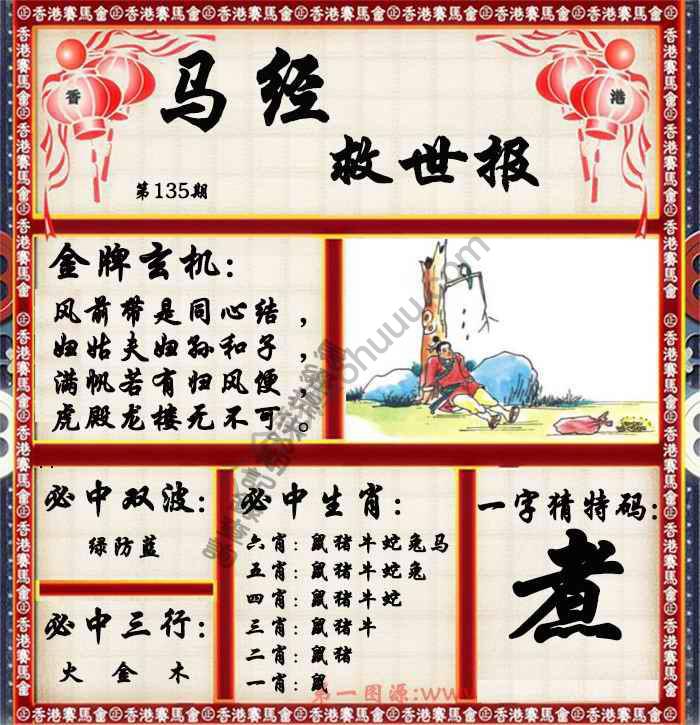 香港賽馬會
香
港
马经
救世报
第135期
金牌玄机：
风前带是同心结，
妇姑夫妇孙和子，
满帆若有归风便，
虎殿龙楼无不可。
必中双波：
绿防蓝
必中三行：
火 金 木
必中生肖：
六肖：鼠猪牛蛇兔马
五肖：鼠猪牛蛇兔
四肖：鼠猪牛蛇
三肖：鼠猪牛
二肖：鼠猪
一肖：鼠
一字猜特码：
煮
第一图源:www